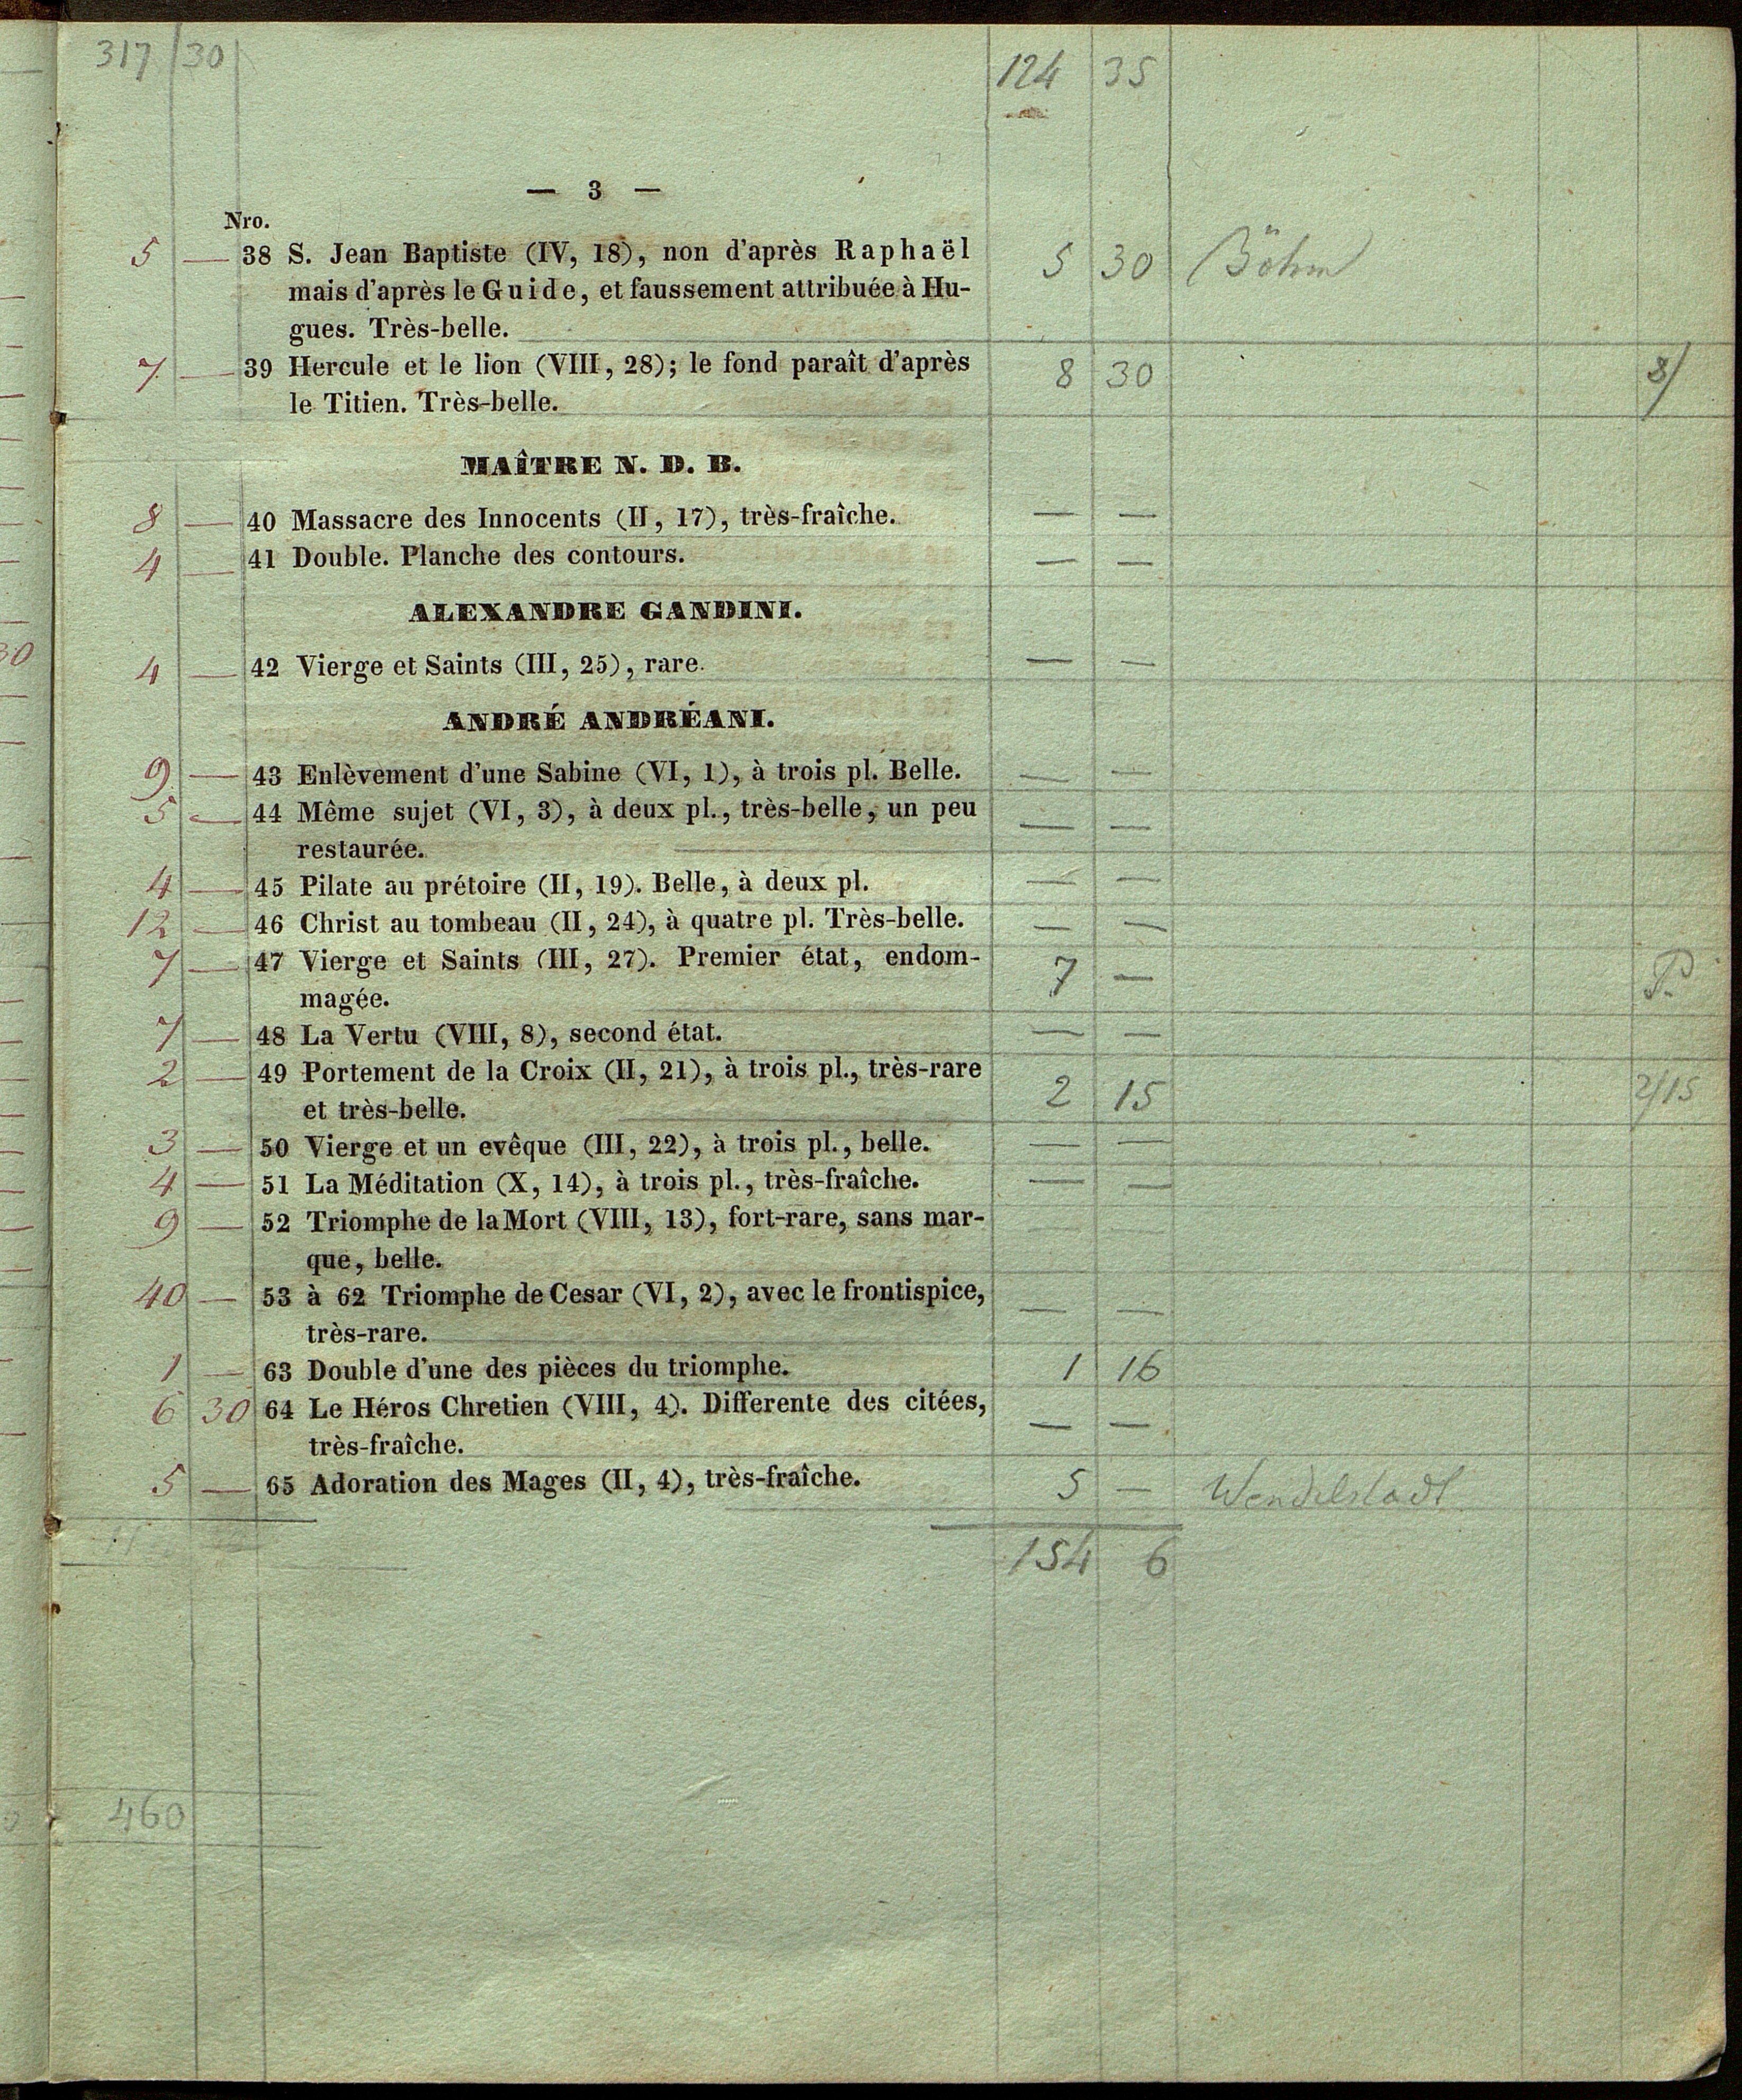 317 30 124 35
— 3 —
Nro.
5 — 38 S. Jean Baptiste (IV, 18), non d'après Raphaël 5 30 Böhm
mais d'après le Guide, et faussement attribuée à Hu-
gues. Très-belle.
7 — 39 Hercule et le lion (VIII, 28); le fond paraît d'après 8 30 8/
le Titien. Très-belle.
MAÎTRE N. D. B.
8 — 40 Massacre des Innocents (II, 17), très-fraîche. — —
4 — 41 Double. Planche des contours. — —
ALEXANDRE GANDINI.
4 — 42 Vierge et Saints (III, 25), rare. — —
ANDRÉ ANDRÉANI.
9 — 43 Enlèvement d'une Sabine (VI, 1), à trois pl. Belle. — —
5 — 44 Même sujet (VI, 3), à deux pl., très-belle, un peu — —
restaurée.
4 — 45 Pilate au prétoire (II, 19). Belle, à deux pl. — —
12 — 46 Christ au tombeau (II, 24), à quatre pl. Très-belle. — —
7 — 47 Vierge et Saints (III, 27). Premier état, endom- 7 — P.
magée.
7 — 48 La Vertu (VIII, 8), second état. — —
2 — 49 Portement de la Croix (II, 21), à trois pl., très-rare 2 15 2/15
et très-belle.
3 — 50 Vierge et un evêque (III, 22), à trois pl., belle. — —
4 — 51 La Méditation (X, 14), à trois pl., très-fraîche. — —
9 — 52 Triomphe de la Mort (VIII, 13), fort-rare, sans mar-
que, belle.
40 — 53 à 62 Triomphe de Cesar (VI, 2), avec le frontispice, — —
très-rare.
1 — 63 Double d'une des pièces du triomphe. 1 16
6 30 64 Le Héros Chretien (VIII, 4). Differente des citées, — —
très-fraîche.
5 — 65 Adoration des Mages (II, 4), très-fraîche. 5 — Wendelstadt
154 6
460